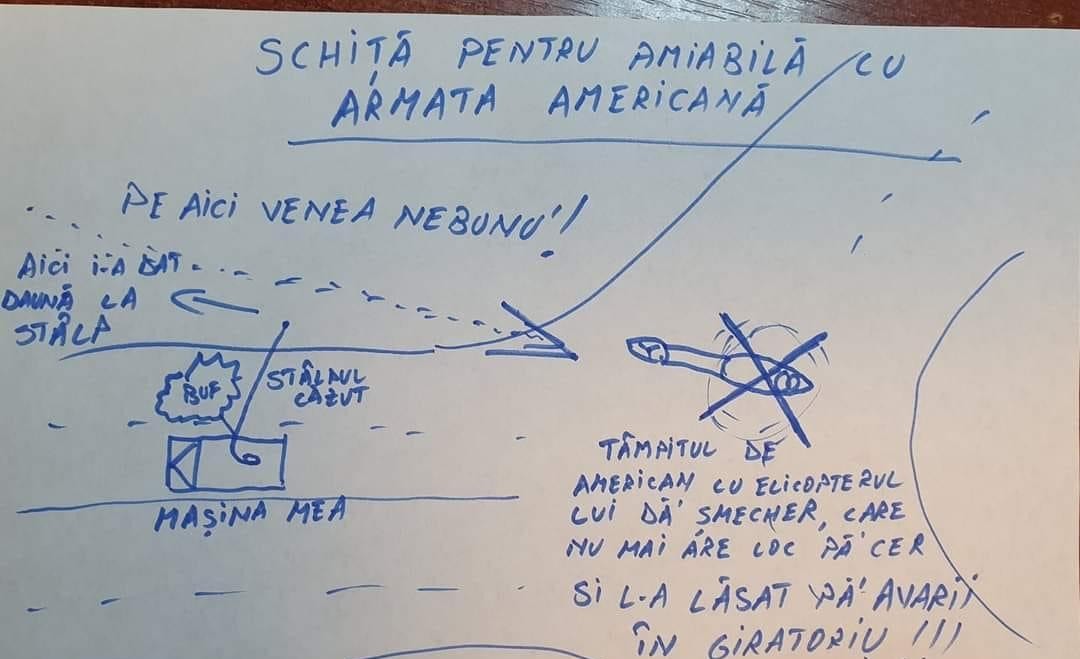 SCHIȚĂ PENTRU AMIABILĂ CU
ARMATA AMERICANĂ
PE AICI VENEA NEBUNU'!
AICI I-A DAT
DAUNĂ LA
STÂLP
BUF
STÂLPUL
CĂZUT
MAȘINA MEA
TÂMPITUL DE
AMERICAN CU ELICOPTERUL
LUI DĂ' SMECHER, CARE
NU MAI ARE LOC PĂ' CER
SI L-A LĂSAT PĂ' AVARII
ÎN GIRATORIU !!!